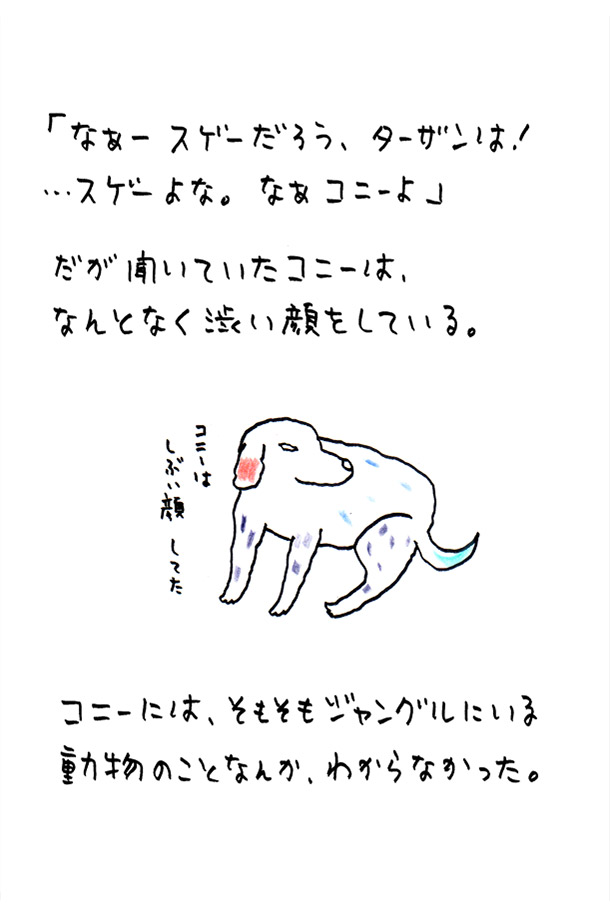 「なぁー スゲーだろう、ターザンは!
…スゲーよな。 なぁ コニーよ」
だが聞いていたコニーは、
なんとなく渋い顔をしている。
コニーは
しぶい顔してた
コニーには、そもそもジャングルにいる
動物のことなんか、わからなかった。